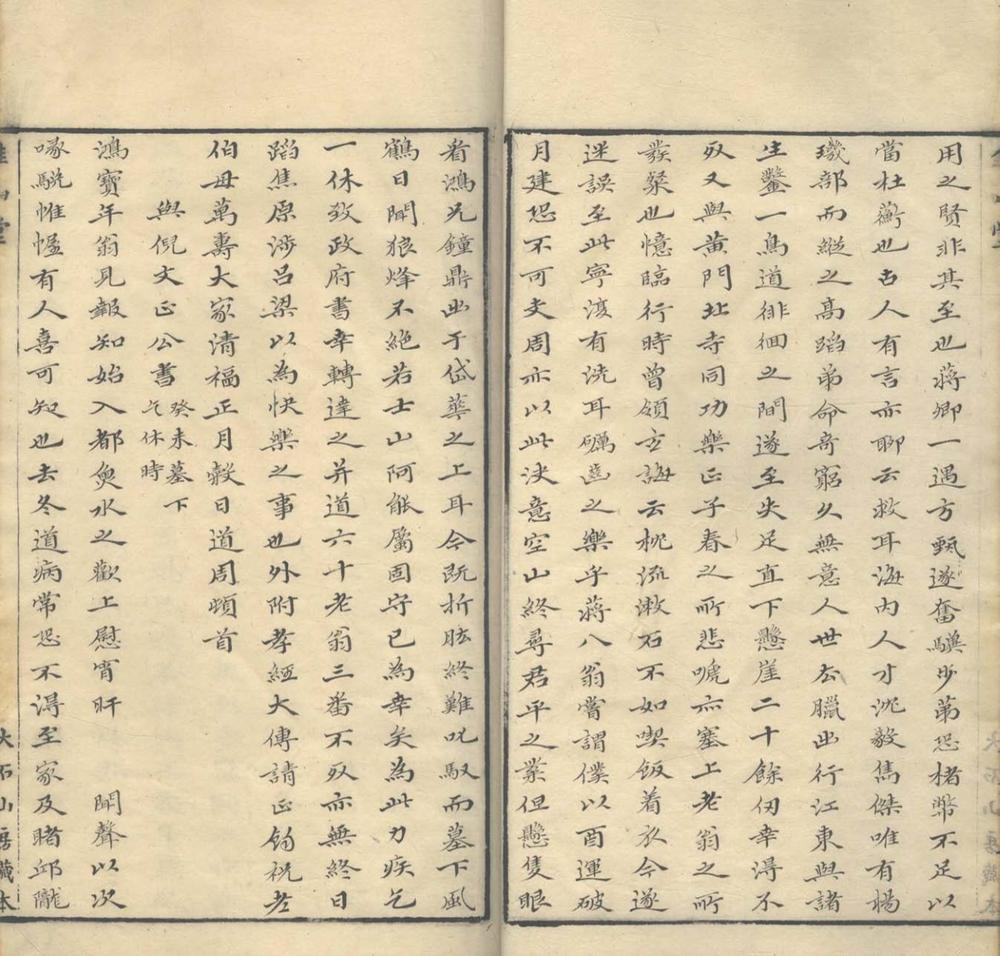 用之賢非其至也蔣卿一遇方甄遂奮驥步弟恐楮幣不足以
當杜蘅也古人有言亦聊云救耳海內人才沈毅雋傑唯有楊
璣部而縱之高蹈弟命奇窮久無意人世去臘出行江東與諸
生鑿一鳥道徘徊之間遂至失足直下懸崖二十餘仞幸得不
死又與黃門北寺同功樂正子春之所悲噓亦塞上老翁之所
發粲也憶臨行時曾領玄誨云枕流漱石不如喫飯着衣今遂
迷誤至此寧復有洗耳礪齒之樂乎蔣八翁嘗謂僕以酉運破
月建恐不可支周亦以此決意空山終尋君平之業但懸隻眼
看鴻兄鐘鼎出于岱華之上耳今既折肱終難叱馭而墓下風
鶴日聞狼烽不絕若士山阿能厲固守已為幸矣為此力疾乞
一休致政府書幸轉達之并道六十老翁三番不死亦無終日
蹈焦原涉呂梁以為快樂之事也外附孝經大傳請正錫祝老
伯母萬壽大家清福正月穀日道周頓首
與倪文正公書 癸未墓下乞休時
鴻寶年翁見報知始入都魚水之歡上慰宵旰 聞聲以次
啄駾惟幄有人喜可知也去冬道病常恐不得至家及睹邱隴
大石山房藏本